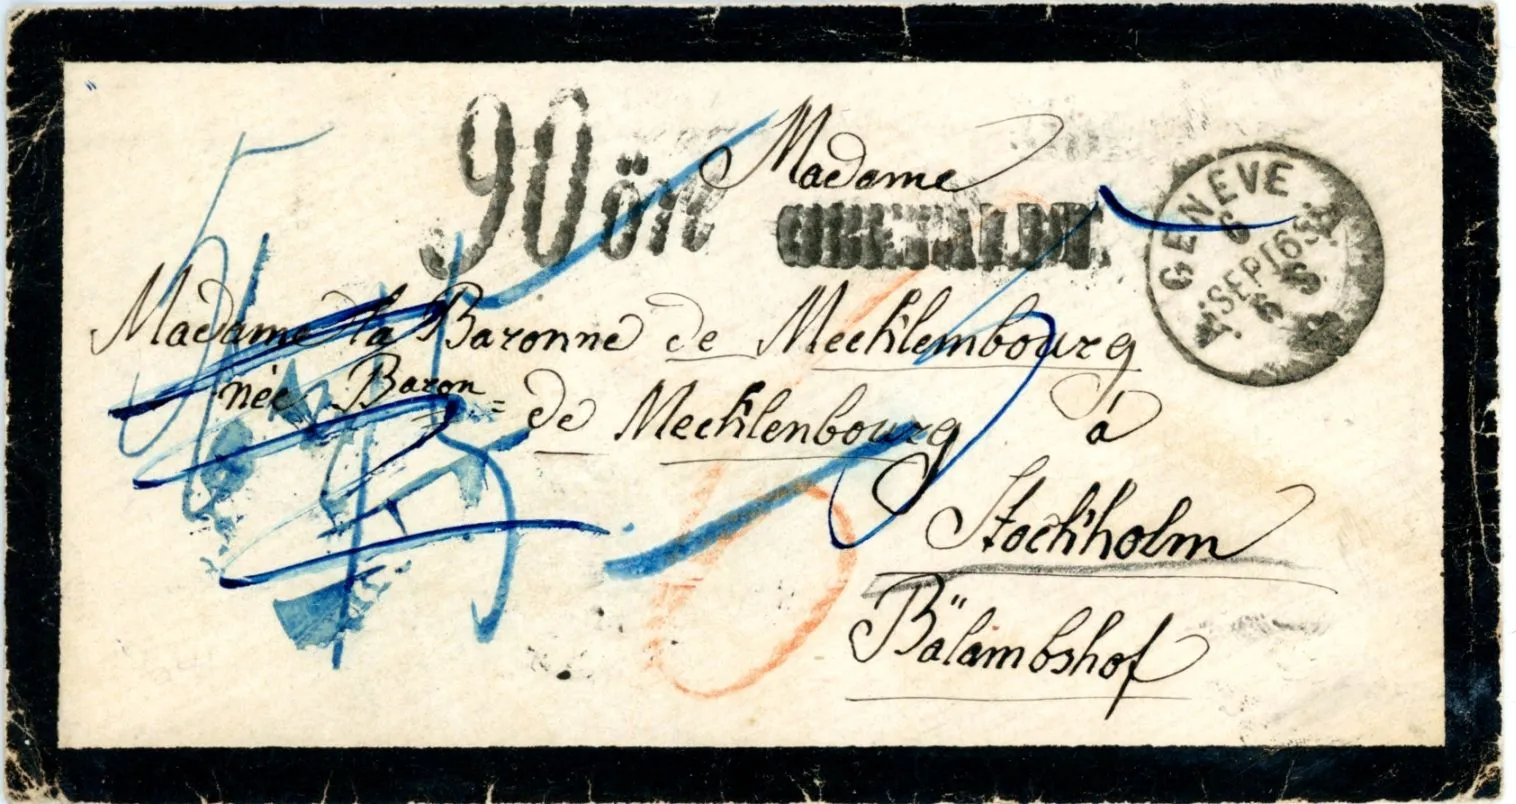 90 öre
Madame
OBETALDT.
GENÈVE
SEPT 65
Madame la Baronne de Mecklembourg
née Baron = de Mecklenbourg à
Stockholm
Bälambshof